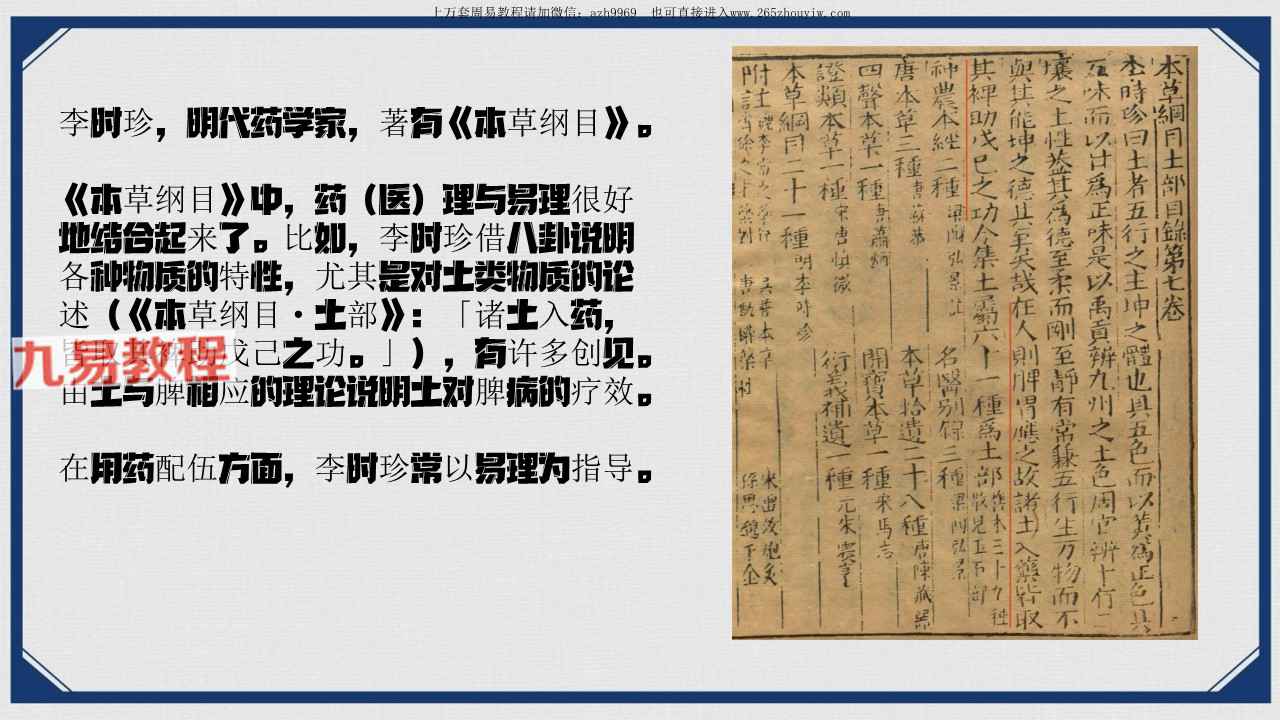 上万套周易教程请加微信：azh9969 也可直接进入www.265zhouyiw.com
李时珍，明代药学家，著有《本草纲目》。
《本草纲目》中，药（医）理与易理很好
地结合起来了。比如，李时珍借八卦说明
各种物质的特性，尤其是对土类物质的论
述（《本草纲目·土部》：「诸土入药，
皆取其裨助戊己之功。」），有许多创见。
由土与脾相应的理论说明土对脾病的疗效。
在用药配伍方面，李时珍常以易理为指导。
九易教程
本草綱目土部目錄第七卷
李時珍曰土者五行之主坤之體也具五色而以黃爲正色具
五味而以甘爲正味是以禹貢辨九州之土色周官辨十有二
壤之土性蓋其爲德至柔而剛至靜有常兼五行生万物而不
與其能坤之德其至矣哉在人則脾胃應之故諸土入藥皆取
其裨助戊己之功今集土屬六十一種爲土部舊本三十九種散見玉石部
神農本經二種梁陶弘景註 名醫別錄三種梁陶弘景
唐本草三種唐蘇恭 本草拾遺二十八種唐陳藏器
四聲本草一種唐蕭炳 開寶本草一種宋馬志
證類本草一種宋唐慎微 衍義補遺一種元朱震亨
本草綱目二十一種明李時珍